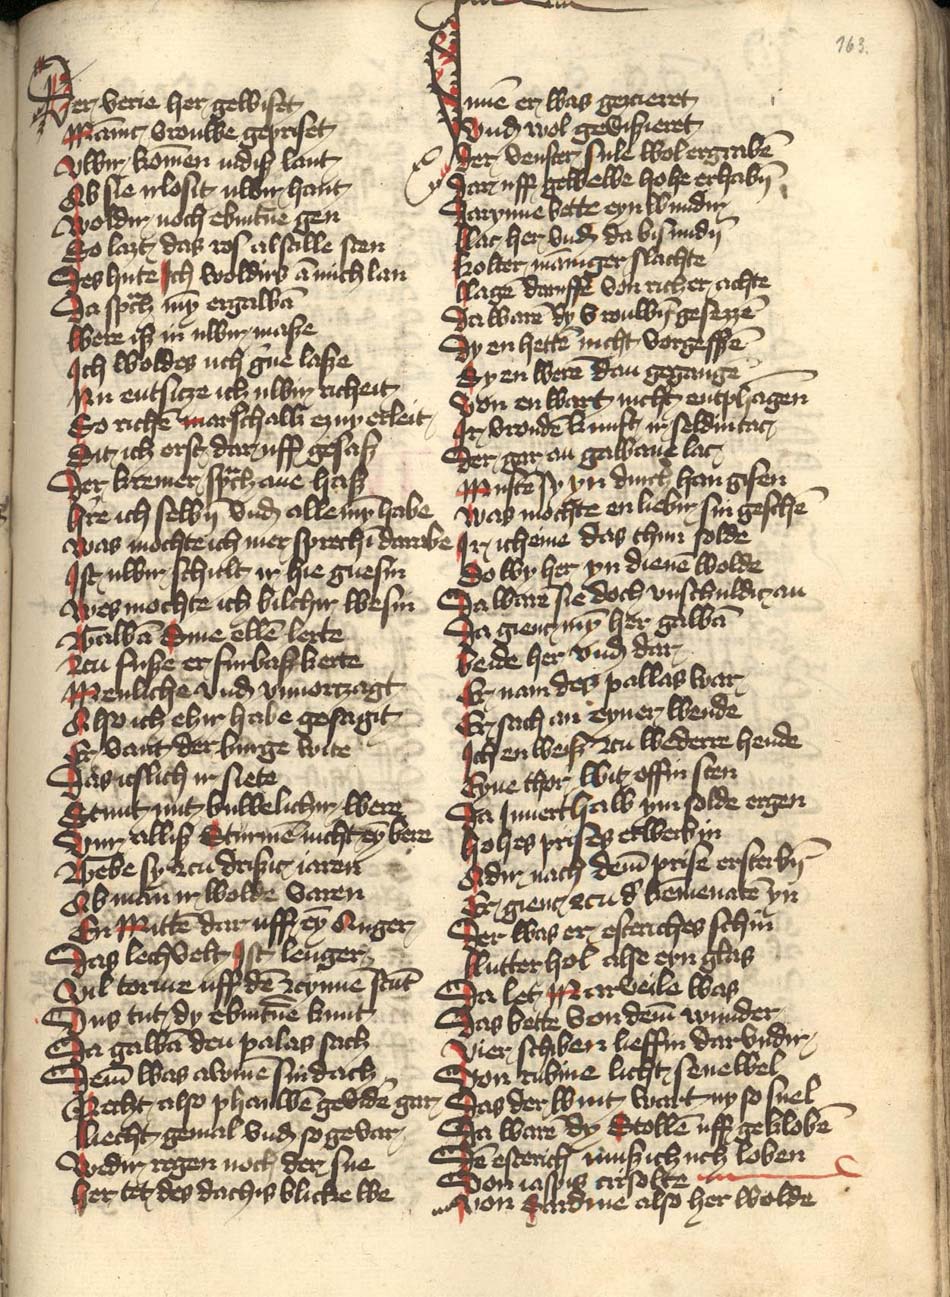 163.
Der verie her gewiset
Mānic vrouwe gepriset
Vwir komen irdiß lant
Ab sie irlosit uwir hant
Woldir noch ebintūe gen
So lazt das ros alstille sten
Des hute Ich woldirs ā mich lan
Da sprach mȳ ergalbā
Were iß in uwir maße
Ich woldes uch gne laße
Nu entsitze ich uwir richeit
So richē marschalk ezny erleit
Sit ich erst dar uff gesaß
Der kremer sprach ane haß
Hre ich selbȳ vnd alle mȳ habe
Was mochte ich mer sprechī darabe
Ist uwir schult ir hie gnesin
Wes mochte ich bilchir wesin
Galbā Sine ellē lerte
Zcu fuße er furbaß kerte
Menliche vnd vnuorczagt
Also ich ebir habe gesagit
Er vant der burge wite
Das icslich ir siete
Stunt mit buwelichir were
Vur alliß Sturmē nicht ey bere
Gebe sy zcu drißig iaren
Ab mān ir wolde varen
En Mittē dar uff eȳ Anger
Das lechvelt Ist lenger
Vil torme uff dē zcynne stūt
Vns tut dy ebintūe kunt
Da galbā den palas sach
Dem was alvme sin dach
Recht also phauwē gevidē gar
Liecht gemal vnd so gevar
Wedir regen noch der sne
Her tet des dachis blicke we
Inne er was gezieret
Vnd wol gevisieret
Der venster sule wol ergrabē
Dar uff gewelbe hohe erhabȳ
Darynne bette eyn wundir
Lac her vnd da bisundȳ
Kolter maniger slachte
Lagē daruffe von richer achte
Da warē dy vrouwȳ gesezzē
Dy en hettē nicht vorgessē
Sy en werē dan gegange
Von en wart nicht entphāgen
Ir vrondē kunft ir seldin tac
Der gar an galbane lac
Mustē sy yn dinct han gisen
Was mochte en liebir sin geschē
Ir icheine das thun solde
Do wy her yn dienē wolde
Da warē sie doch vnschuldic an
Da gienc mȳ her galbā
Beide her vnd dar
Er nam des pallas war
Er sach an eyner wende
Ich en weiß zcu wederre hende
Eyne thor wit offin sten
Da Innerthalb ym solde ergen
Hohes prises erwerbin
Adir nach dem prise ersterbȳ
Er gienc zcu d' kemenatē yn
Der was er esteriches schin
Lutter hol alse eyn glas
Da let Marveile was
Das bette von dem wunder
Vier schiben lieffin darvndir
Von rubine licht senewel
Das der wint wart ny so snel
Da warē dy Stollē uff geklobē
Dē esterich muß ich uch loben
Von iaspis crisolte
Von Sardine also her wolde